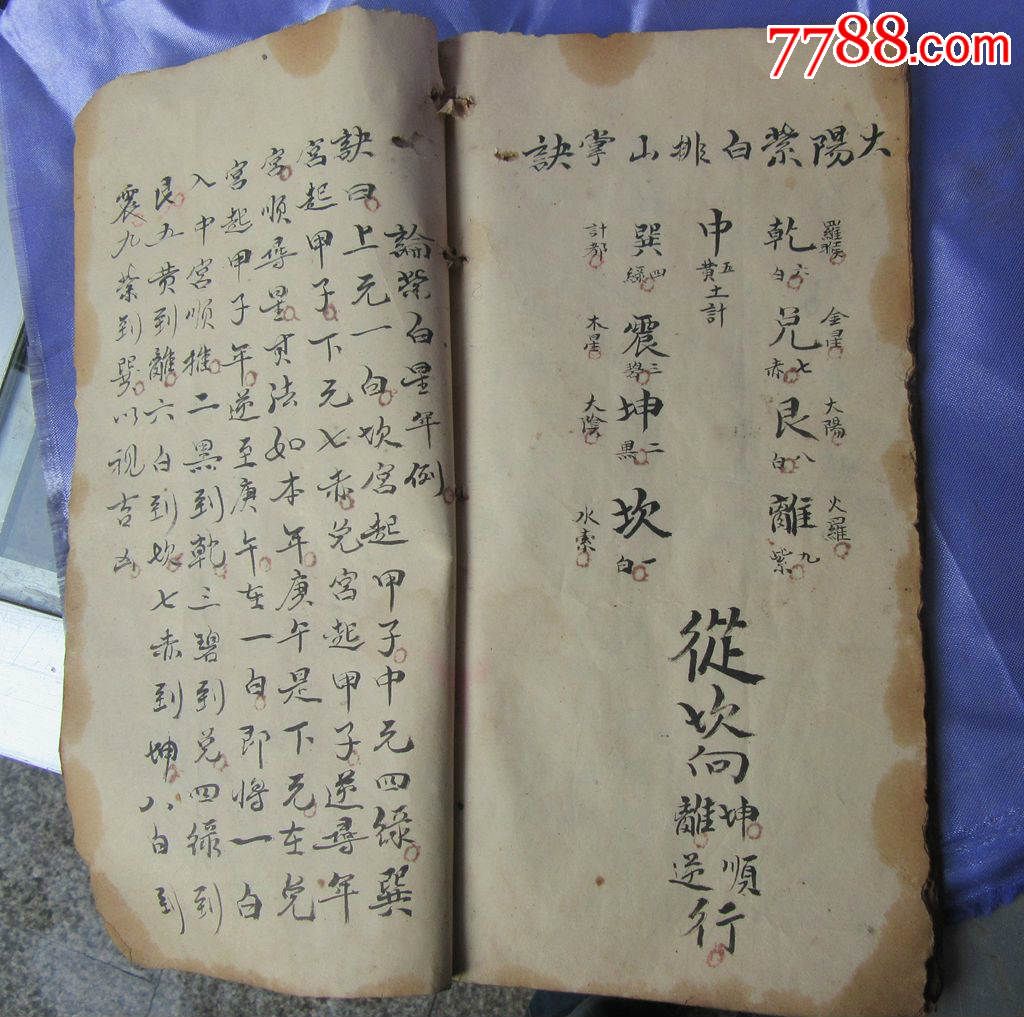 7788.com
大陽紫白排山掌訣
羅睺 金星 大陽 火羅
乾六白 兑七赤 艮八白 離九紫
中五黄土計
巽四綠 震三碧 坤二黑 坎一白
計都 木星 大陰 水
從坎向坤順離逆行
論紫白星年例
訣曰上元一白坎宮起甲子中元四綠巽
宮起甲子下元七赤兑宮起甲子逆尋年
宮順尋星其法如本年庚午是下元在兑
宮起甲子年逆至庚午在一白即將一白
入中宮順推二黑到乾三碧到兑四綠到
艮五黄到離六白到坎七赤到坤八白到
震九紫到巽以視吉凶